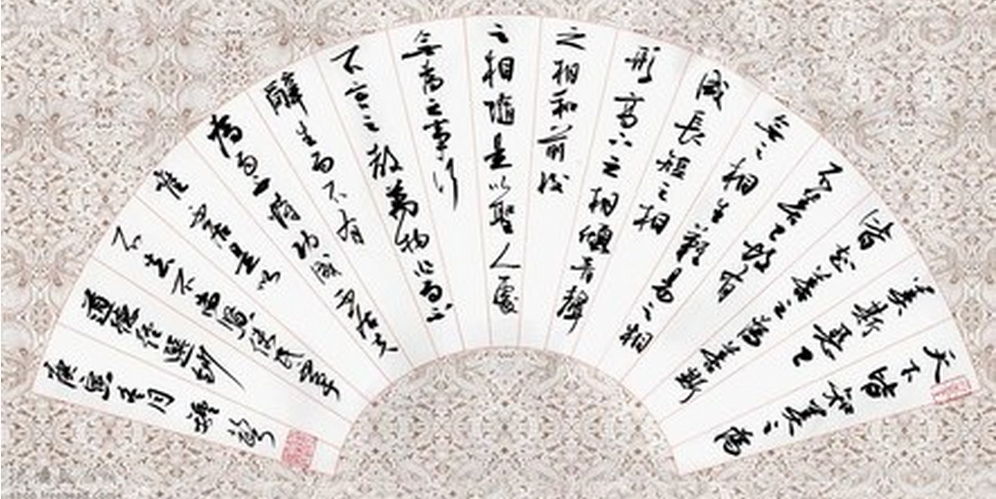 天下皆知美之為
美斯惡已
皆知善之為善斯
不善已故有
無之相生難易之相
成長短之相
形高下之相傾音聲
之相和前後
之相隨是以聖人處
無為之事行
不言之教萬物作而不
辭生而不有
為而不恃功成不居夫
唯不居是以
不去不尚賢使民不爭
道德經選鈔
庚寅